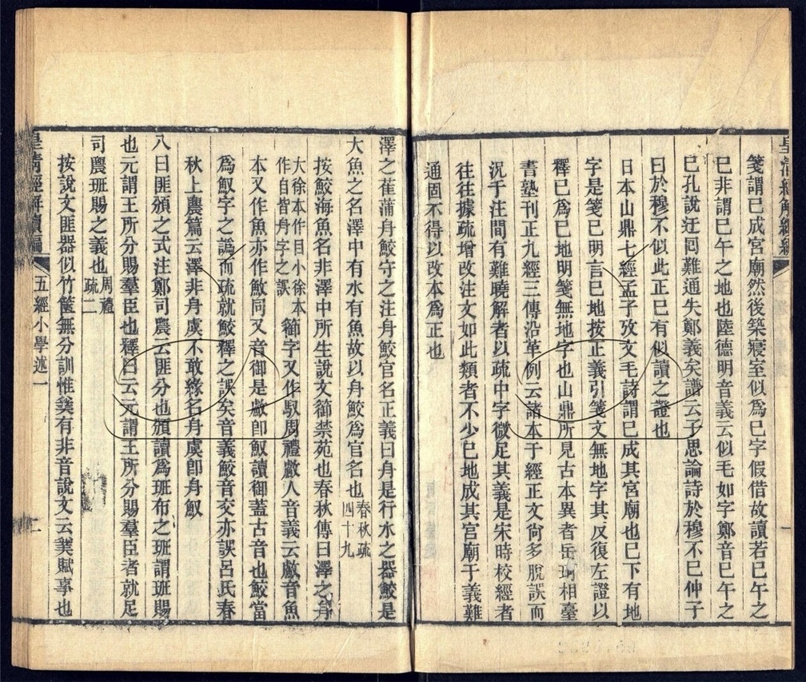 皇清經解續編
箋謂巳成宮廟然後築寢室似爲巳字假借故讀若巳午之
巳非謂巳午之地也陸德明音義云似毛如字鄭音巳午之
巳孔說迂回難通失鄭義矣譜云子思論詩於穆不巳仲子
曰於穆不似此正巳有似讀之證也
日本山鼎七經孟子攷文毛詩謂巳成其宮廟也巳下有地
字是箋巳明言巳地按正義引箋文無地字其反復左證以
釋巳爲巳地明箋無地字也山鼎所見古本異者岳珂相臺
書塾刊正九經三傳沿革例云諸本于經正文尙多脫誤而
況于注間有難曉解者以疏中字微足其義是宋時校經者
往往據疏增改注文如此類者不少巳地成其宮廟于義難
通固不得以改本爲正也
澤之萑蒲舟鮫守之注舟鮫官名正義曰舟是行水之器鮫是
大魚之名澤中有水有魚故以舟鮫爲官名也春秋疏四十九
按鮫海魚名非澤中所生說文篽禁苑也春秋傳曰澤之舟
大徐本作目小徐本作自皆舟字之誤篽字又作䱷周禮䱷人音義云䱷音魚
本又作魚亦作䱷同又音御是䱷卽䱷讀御蓋古音也鮫當
爲䱷字之譌而疏就鮫釋之誤矣音義鮫音交亦誤呂氏春
秋上農篇云澤非舟虞不敢緣名舟虞卽舟䱷
八曰匪頒之式注鄭司農云匪分也頒讀爲班布之班謂班賜
也元謂王所分賜羣臣也釋曰云元謂王所分賜羣臣者就足
司農班賜之義也周禮疏二
按說文匪器似竹篋無分訓惟㒸有非音說文云㒸賦事也
皇清經解續編 五經小學述一 二